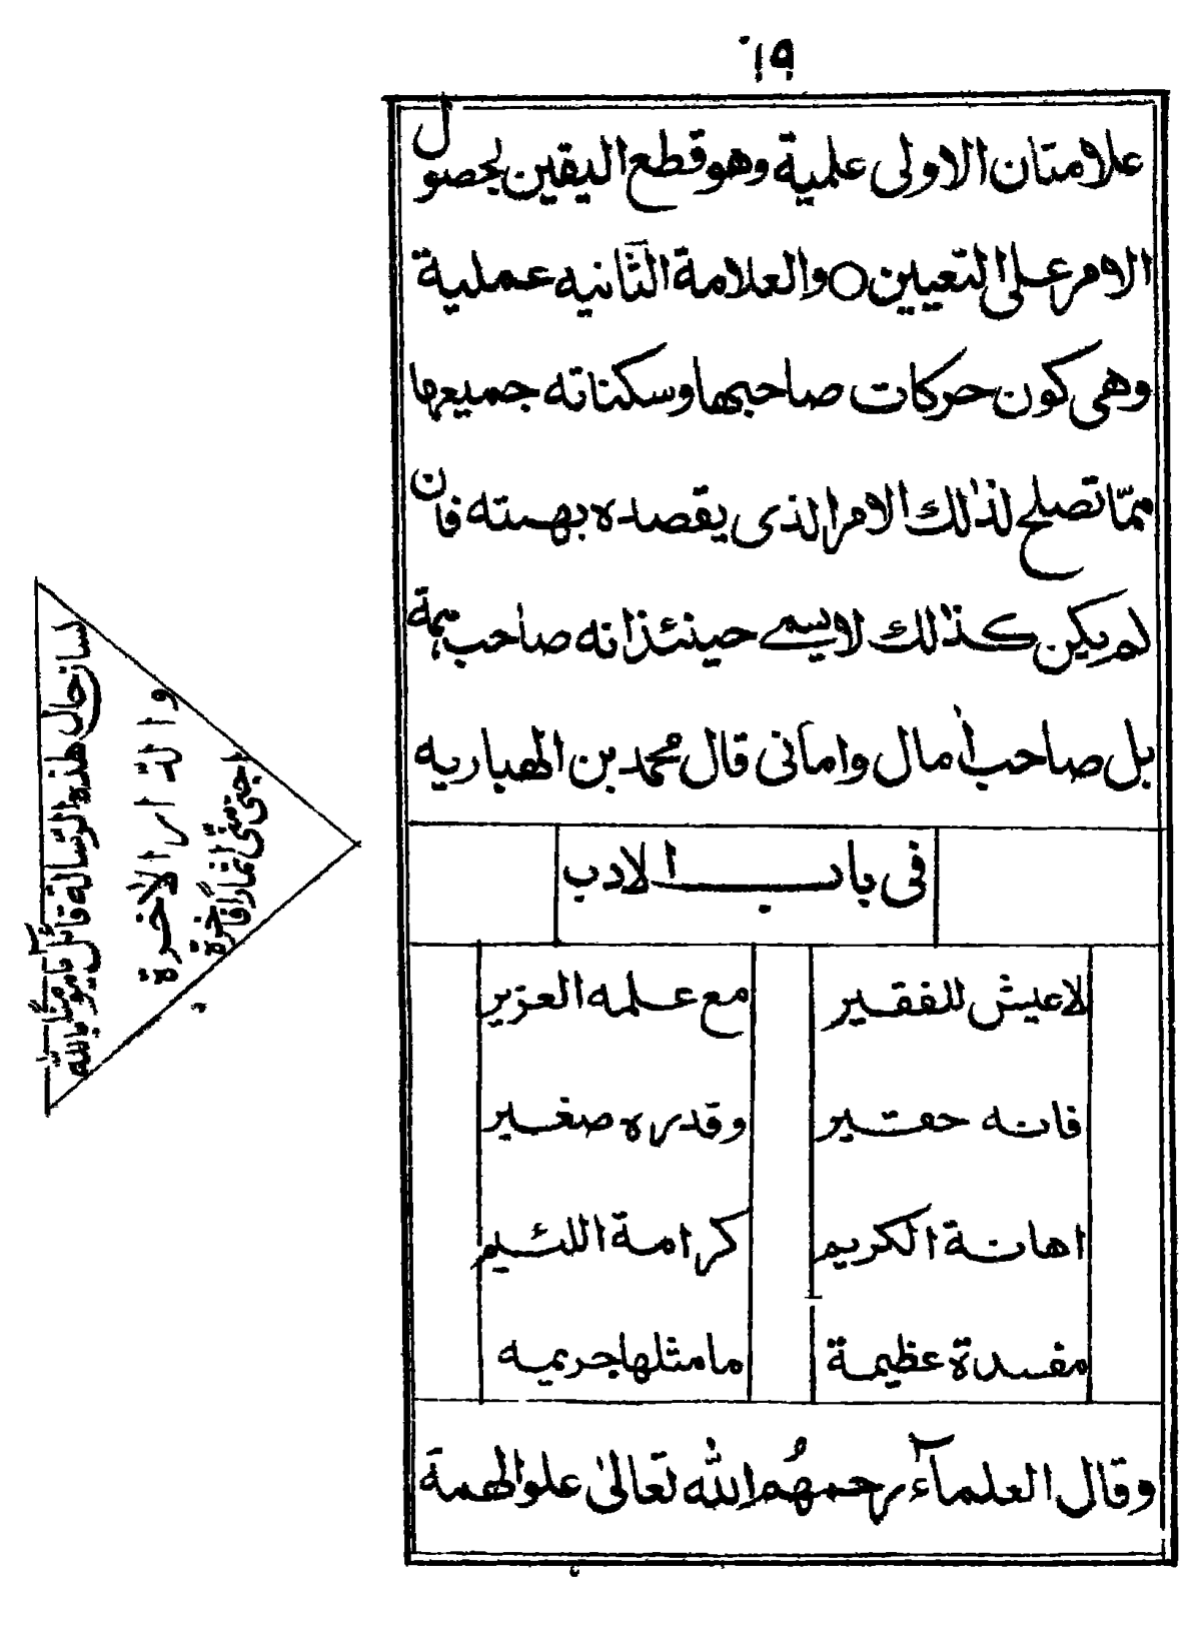 ١٩
علامتان الاولى علمية وهو قطع اليقين بحصول
الامر على التعيين ○ والعلامة الثانيه عملية
وهى كون حركات صاحبها وسكناته جميعها
ممّا تصلح لذلك الامر الذى يقصده بهمته فان
لم يكن كذلك لا يسمے حينئذ انه صاحب همة
بل صاحب اٰمال وامانى قال محمد بن الهباريه
فى باب الادب
لا عيش للفقير مع علمه العزير
فانه حقير وقدره صغير
اهانة الكريم كرامة اللئيم
مفسدة عظيمة ما مثلها جريمه
وقال العلمآء رحمهُم الله تعالىٰ علو الهمة
لسان حال هذه الرّسالة قائل
والدّار الاخرة
اجتنى منّى ثمارًا فاخرة